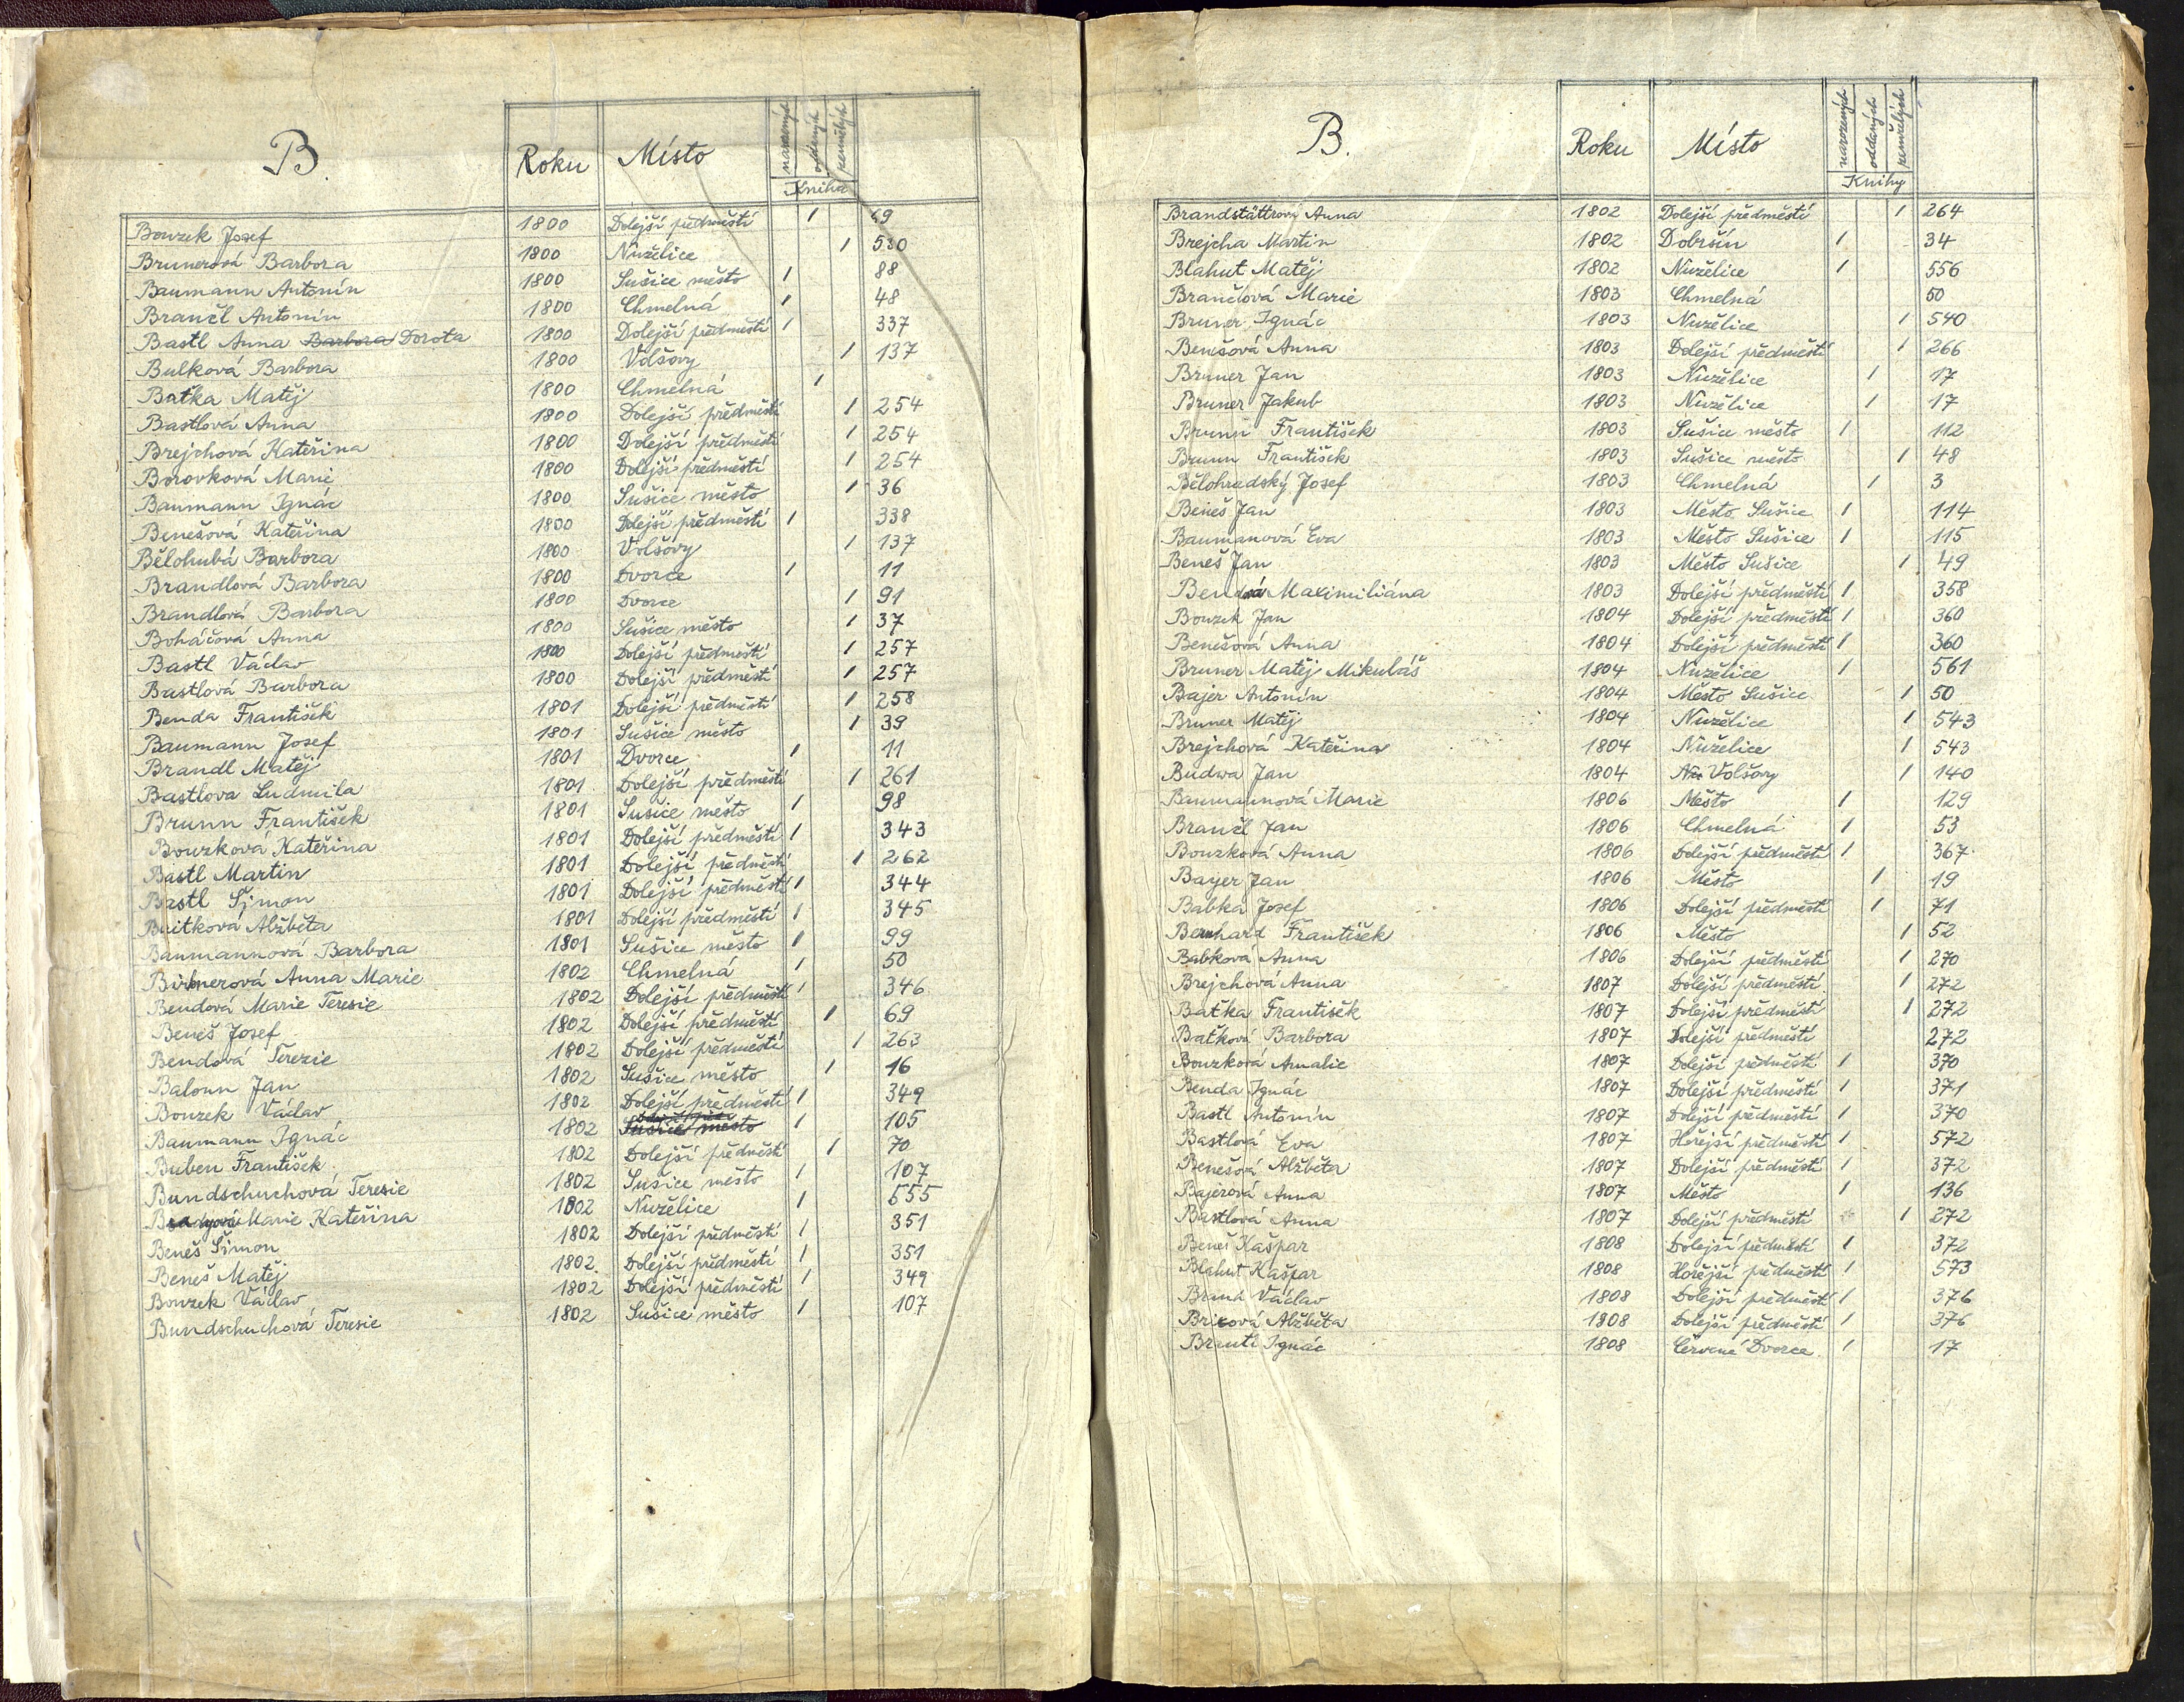 B.
Roku
Místo
narozených
oddaných
zemřelých
Kniha
Bouzek Josef 1800 Dolejší předměstí / 69
Brunerová Barbora 1800 Nuzělice / 530
Baumann Antonín 1800 Sušice město / 88
Brančl Antonín 1800 Chmelná / 48
Bastl Anna Barbora Dorota 1800 Dolejší předměstí / 337
Bulková Barbora 1800 Volšovy / 137
Baťka Matěj 1800 Chmelná /
Bastlová Anna 1800 Dolejší předměstí / 254
Brejchová Kateřina 1800 Dolejší předměstí / 254
Borovková Marie 1800 Dolejší předměstí / 254
Baumann Ignác 1800 Sušice město / 36
Benešová Kateřina 1800 Dolejší předměstí / 338
Bělohubá Barbora 1800 Volšovy / 137
Brandlová Barbora 1800 Dvorce / 11
Brandlová Barbora 1800 Dvorce / 91
Boháčová Anna 1800 Sušice město / 37
Bastl Václav 1800 Dolejší předměstí / 257
Bastlová Barbora 1800 Dolejší předměstí / 257
Benda František 1801 Dolejší předměstí / 258
Baumann Josef 1801 Sušice město / 39
Brandl Matěj 1801 Dvorce / 11
Bastlova Ludmila 1801 Dolejší předměstí / 261
Brunn František 1801 Sušice město / 98
Bouzková Kateřina 1801 Dolejší předměstí / 343
Bastl Martin 1801 Dolejší předměstí / 262
Bastl Šimon 1801 Dolejší předměstí / 344
Buitková Alžběta 1801 Dolejší předměstí / 345
Baumannová Barbora 1801 Sušice město / 99
Birnerová Anna Marie 1802 Chmelná / 50
Bendová Marie Teresie 1802 Dolejší předměstí / 346
Beneš Josef 1802 Dolejší předměstí / 69
Bendová Terezie 1802 Dolejší předměstí / 263
Baloun Jan 1802 Sušice město / 16
Bouzek Václav 1802 Dolejší předměstí / 349
Baumann Ignác 1802 Sušice město / 105
Buben František 1802 Dolejší předměstí / 70
Bundschuchová Teresie 1802 Sušice město / 107
Marie Kateřina 1802 Nuzělice / 555
Beneš Šimon 1802 Dolejší předměstí / 351
Beneš Matěj 1802. Dolejší předměstí / 351
Bouzek Václav 1802 Dolejší předměstí / 349
Bundschuchová Teresie 1802 Sušice město / 107
B.
Roku
Místo
narozených
oddaných
zemřelých
Knihy
Brandstättrová Anna 1802 Dolejší předměstí / 264
Brejcha Martin 1802 Dobršín / 34
Blahut Matěj 1802 Nuzělice / 556
Brančlová Marie 1803 Chmelná 50
Bruner Ignác 1803 Nuzělice / 540
Benešová Anna 1803 Dolejší předměstí / 266
Bruner Jan 1803 Nuzělice / 17
Bruner Jakub 1803 Nuzělice / 17
Brunn František 1803 Sušice město / 112
Brunn František 1803 Sušice město / 48
Bělohradský Josef 1803 Chmelná / 3
Beneš Jan 1803 Město Sušice / 114
Baumanová Eva 1803 Město Sušice / 115
Beneš Jan 1803 Město Sušice / 49
Bendová Maximiliána 1803 Dolejší předměstí / 358
Bouzek Jan 1804 Dolejší předměstí / 360
Benešová Anna 1804 Dolejší předměstí / 360
Bruner Matěj Mikuláš 1804 Nuzělice / 561
Bajer Antonín 1804 Město Sušice / 50
Bruner Matěj 1804 Nuzělice / 543
Brejchová Kateřina 1804 Nuzělice / 543
Budwa Jan 1804 Volšovy / 140
Baumannová Marie 1806 Město / 129
Brančl Jan 1806 Chmelná / 53
Bouzková Anna 1806 Dolejší předměstí / 367
Bayer Jan 1806 Město / 19
Babka Josef 1806 Dolejší předměstí / 71
Bernhard František 1806 Město / 52
Babková Anna 1806 Dolejší předměstí / 270
Brejchová Anna 1807 Dolejší předměstí / 272
Baťka František 1807 Dolejší předměstí / 272
Baťková Barbora 1807 Dolejší předměstí 272
Bouzková Amalie 1807 Dolejší předměstí / 370
Benda Ignác 1807 Dolejší předměstí / 371
Bastl Antonín 1807 Dolejší předměstí / 370
Bastlová Eva 1807 Hořejší předměstí / 572
Benešová Alžběta 1807 Dolejší předměstí / 372
Bajerová Anna 1807 Město / 136
Bastlová Anna 1807 Dolejší předměstí / 272
Beneš Kašpar 1808 Dolejší předměstí / 372
Blahut Kašpar 1808 Hořejší předměstí / 573
Brunn Václav 1808 Dolejší předměstí / 376
Bricová Alžběta 1808 Dolejší předměstí / 376
Brantl Ignác 1808 Červené Dvorce / 17